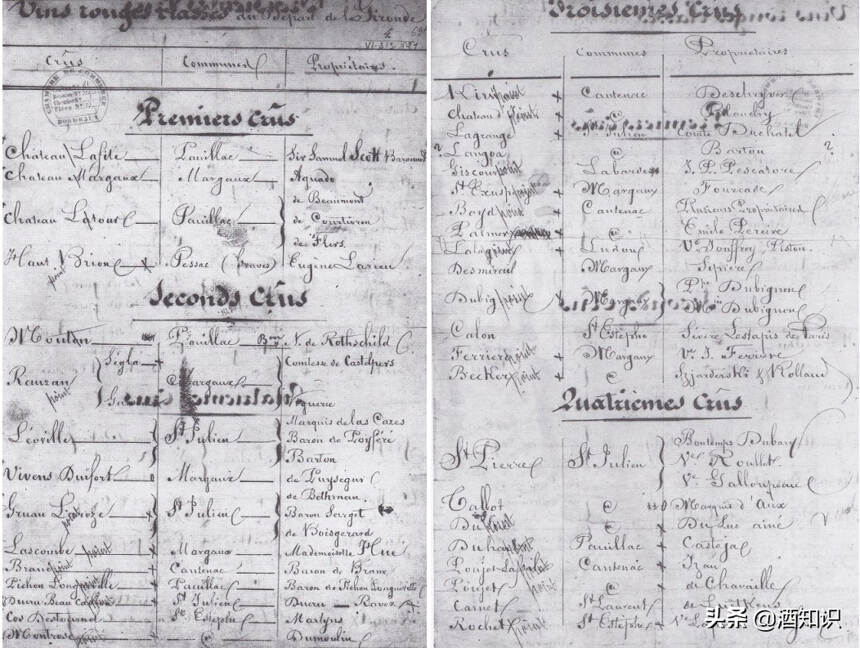 Vins rouges classés du Départ. de la Gironde
Crûs Communes Propriétaires
CHAMBRE DE COMMERCE
BORDEAUX
Premiers Crûs
Château Lafite Pauillac Sir Samuel Scott Baronnet
Château Margaux Margaux Aguado
Château Latour Pauillac de Beaumont
de Courtivron
de Flers
Haut Brion Pessac (Graves) Eugène Larieu
Seconds Crûs
Mouton Pauillac Bon N. de Rothschild
Rauzan Margaux Comtesse de Castelpers
Léoville St Julien Marquis de las Cazes
Baron de Poyféré
Barton
Vivens Durfort Margaux de Puységur
de Bethman
Gruau Laroze St Julien Baron Sarget
de Boisgerard
Lascombe Margaux Mademoiselle Hue
Brane Cantenac Baron de Brane
Pichon Longueville Pauillac Baron de Pichon Longueville
Ducru Beau Caillou St Julien Ducru Ravez
Cos Destournel St Estèphe Martyns
Montrose @ Dumoulin
Troisièmes Crûs
Crus Communes Propriétaires
Kirwan Cantenac Deschryver
Château d' @
Lagrange St Julien Comte Duchatel
Langoa @ Barton ?
Giscours Labarde J. P. Pescatore
St Exupery Margaux Fourcade
Boyd Cantenac Plusieurs Propriétaires
Palmer @ Emile Pereire
Lalagune Ludon Ve Jouffroy Piston
Desmirail Margaux Sipière
Dubignon Margaux Dubignon
Dubignon
Calon St Estèphe Lestapis de Paris
Ferrière Margaux Ve J. Ferrière
Becker @ Rolland
Quatrièmes Crûs
St Pierre St Julien Bontemps Dubarry
Ve Roullet
Ve Galloupeau
Talbot @ Marquis d'Aux
@ Du Luc ainé
Duhart Pauillac Castéja
Poujet Cantenac Izan
Poujet @ de Chavaille
Carnet St Laurent de Luetkens
Rochet St Estèphe Ve
头条 @酒知识